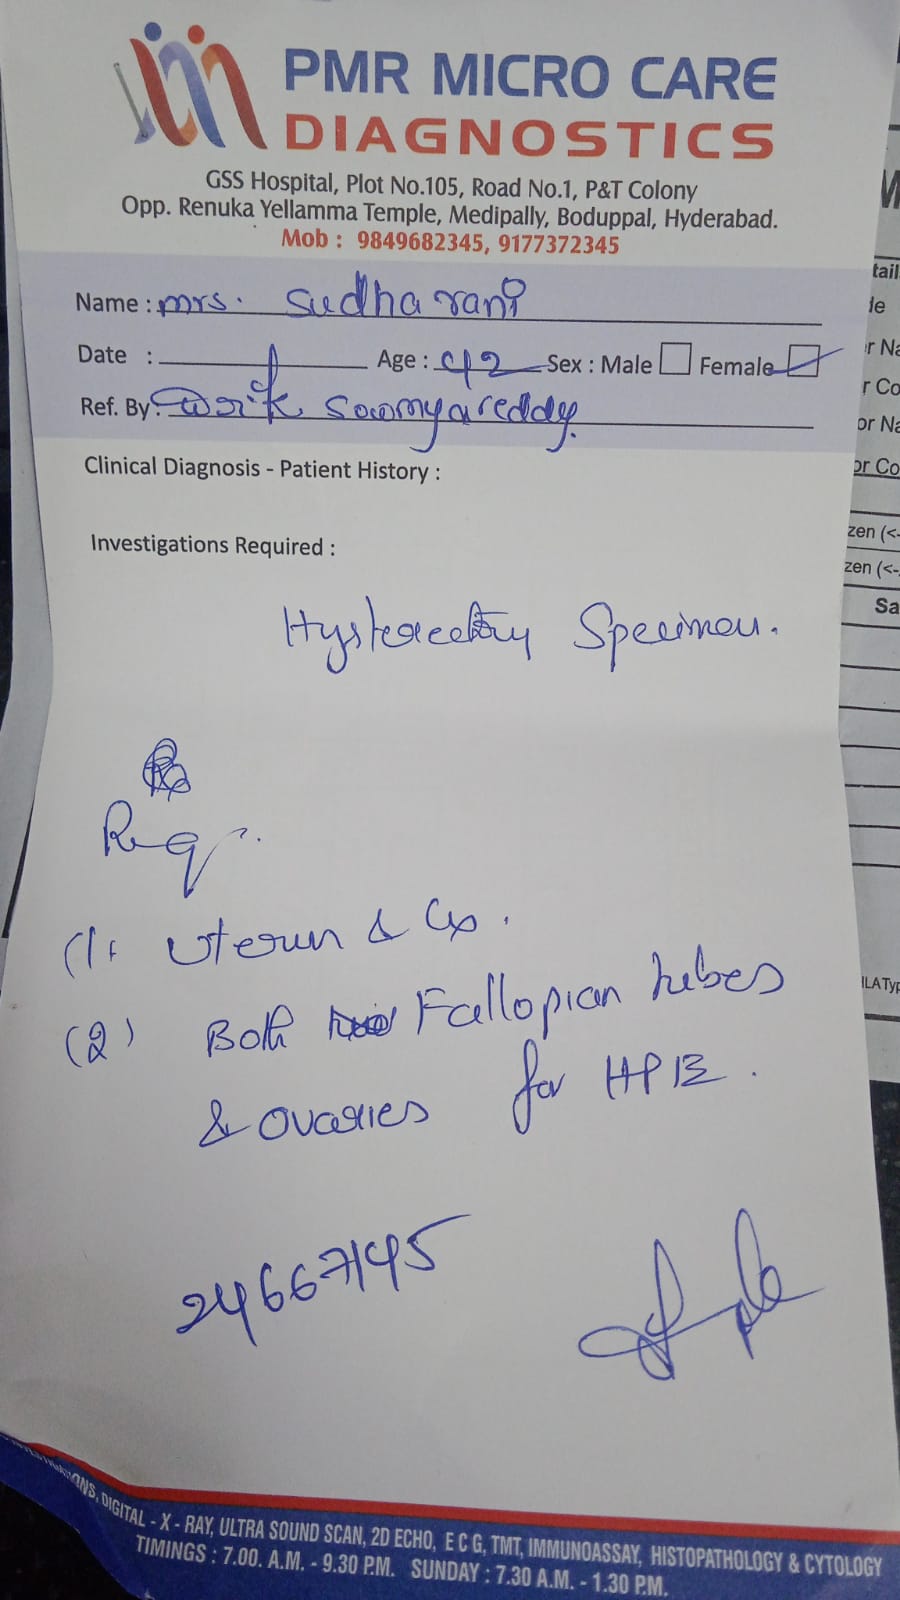 PMR MICRO CARE
DIAGNOSTICS
GSS Hospital, Plot No.105, Road No.1, P&T Colony
Opp. Renuka Yellamma Temple, Medipally, Boduppal, Hyderabad.
Mob : 9849682345, 9177372345
Name : mrs. Sudha rani
Date : Age : 42 Sex : Male Female
Ref. By : Sowmyareddy
Clinical Diagnosis - Patient History :
Investigations Required :
Hysterectomy Specimen.
Req
(1) Uterus & Cx.
(2) Both Fallopian tubes
& ovaries for HPE.
24667145
DIGITAL - X - RAY, ULTRA SOUND SCAN, 2D ECHO, E C G, TMT, IMMUNOASSAY, HISTOPATHOLOGY & CYTOLOGY
TIMINGS : 7.00. A.M. - 9.30 P.M. SUNDAY : 7.30 A.M. - 1.30 P.M.
tail
zen (<-
zen (<-
Sa